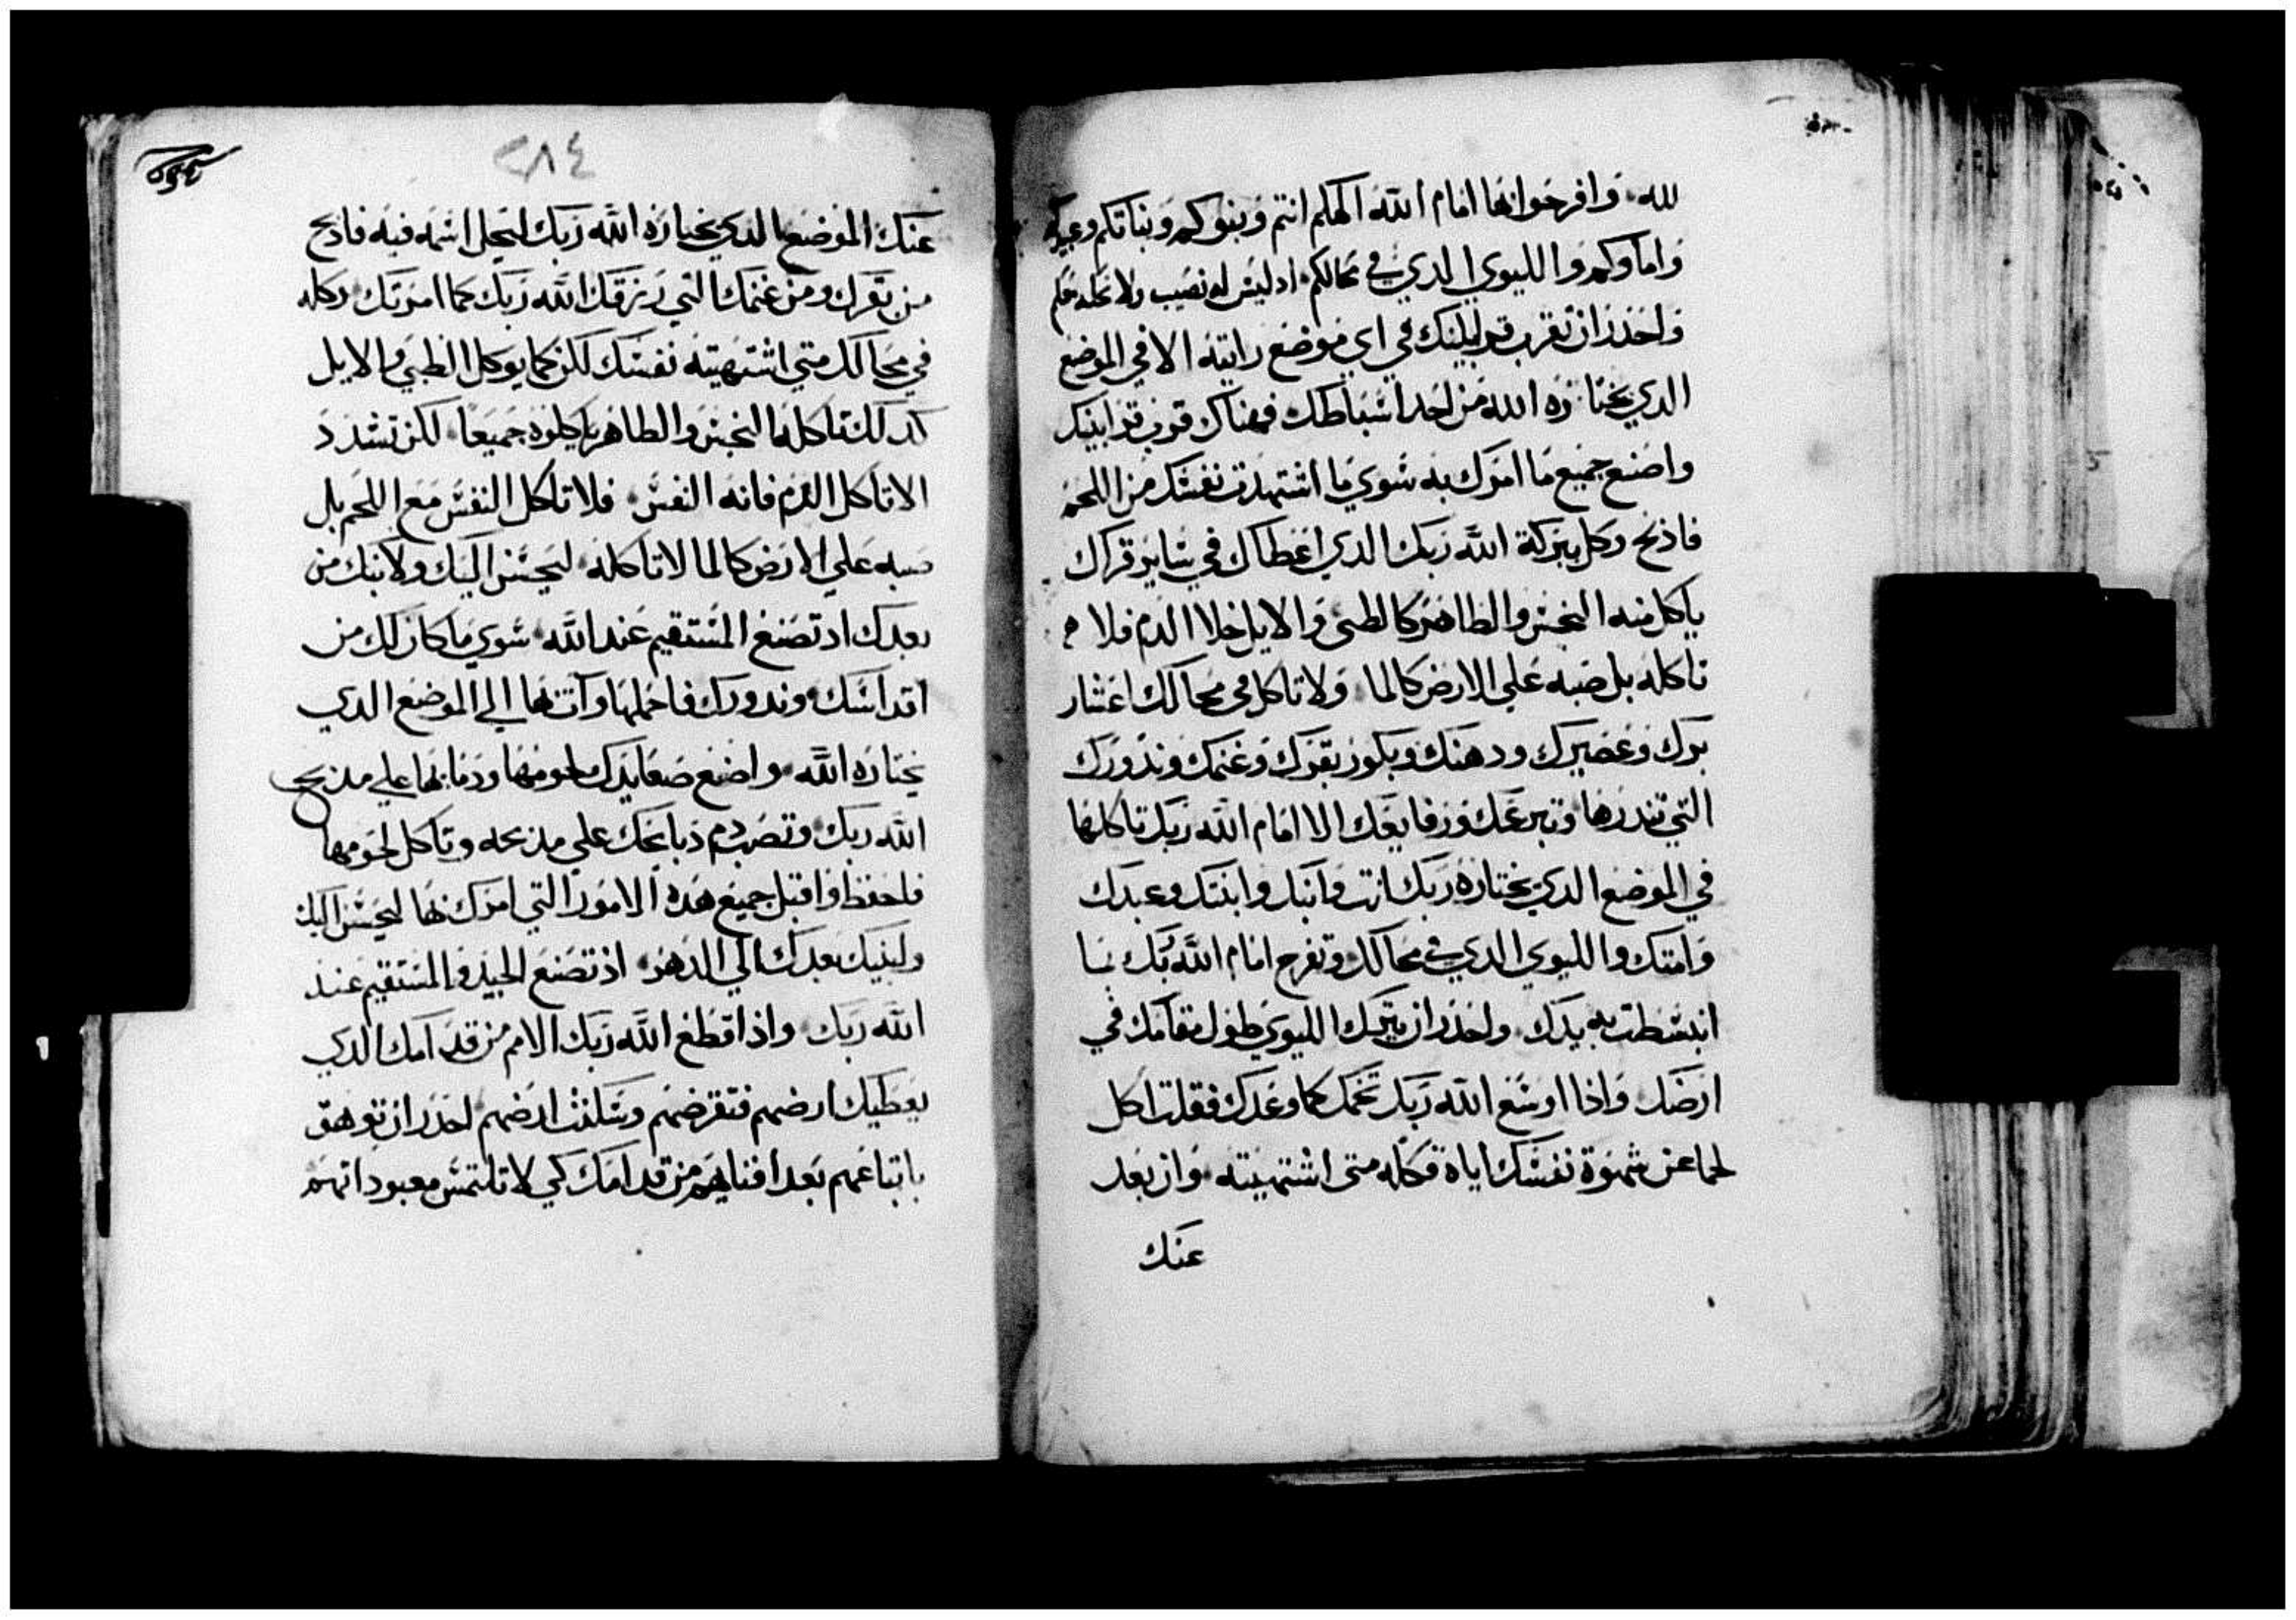 لله وافرحوا بها امام الله الهكم انتم وبنوكم وبناتكم وعبيدكم
واماوكم والليوي الدي في محالكم ادليس له نصيب ولا نحله معكم
واحدر ان تقرب قرابينك في اي موضع رايته الا في الموضع
الدي يختاره الله من احد اسباطك فهناك قرب قرابينك
واصنع جميع ما امرك به سوي ما اشتهت نفسك من اللحم
فادبح وكل ببركة الله ربك الدي اعطاك في ساير قراك
ياكل منه النجس والطاهر كالظبي والايل خلا الدم فلا
تاكله بل صبه علي الارض كالما ولا تاكل في محالك اعشار
برك وعصيرك ودهنك وبكور بقرك وغنمك وندورك
التي تندرها وتبرعك ورفايعك الا امام الله ربك تاكلها
في الموضع الدي يختاره ربك انت وابنك وابنتك وعبدك
وامتك والليوي الدي في محالك وتفرح امام الله ربك بما
انبسطت به يدك واحدر ان تترك الليوي طول مقامك في
ارضك واذا اوسع الله ربك تخمك كما وعدك فقلت اكل
لحما عن شهوة نفسك اياه فكله متى اشتهيته وان بعد
عنك
٢٨٤
عنك الموضع الدي يختاره الله ربك ليحل اسمه فيه فادبح
من بقرك ومن غنمك التي رزقك الله ربك كما امرتك وكله
في محالك متي اشتهيته نفسك لكن كما يوكل الظبي والايل
كدلك تاكله النجس والطاهر ياكلوه جميعا لكن تشدد
الا تاكل الدم فانه النفس فلا تاكل النفس مع اللحم بل
صبه علي الارض كالما لا تاكله ليحسن اليك ولابنك من
بعدك اد تصنع المستقيم عند الله سوي ما كان لك من
اقداسك وندورك فاحملها وات بها الي الموضع الدي
يختاره الله واصنع صعايدك لحومها ودمايها علي مدبح
الله ربك وتصب دم دبايحك علي مدبحه وتاكل لحومها
فاحفظ واقبل جميع هده الامور التي امرك بها ليحسن اليك
ولبنيك بعدك الي الدهر اذ تصنع الجيد والمستقيم عند
الله ربك واذا قطع الله ربك الامم من قدامك الدي
يعطيك ارضهم فتقرضهم وسكنت ارضهم احدر ان توهق
باتباعهم بعد افنايهم من قدامك كي لا تلتمس معبوداتهم